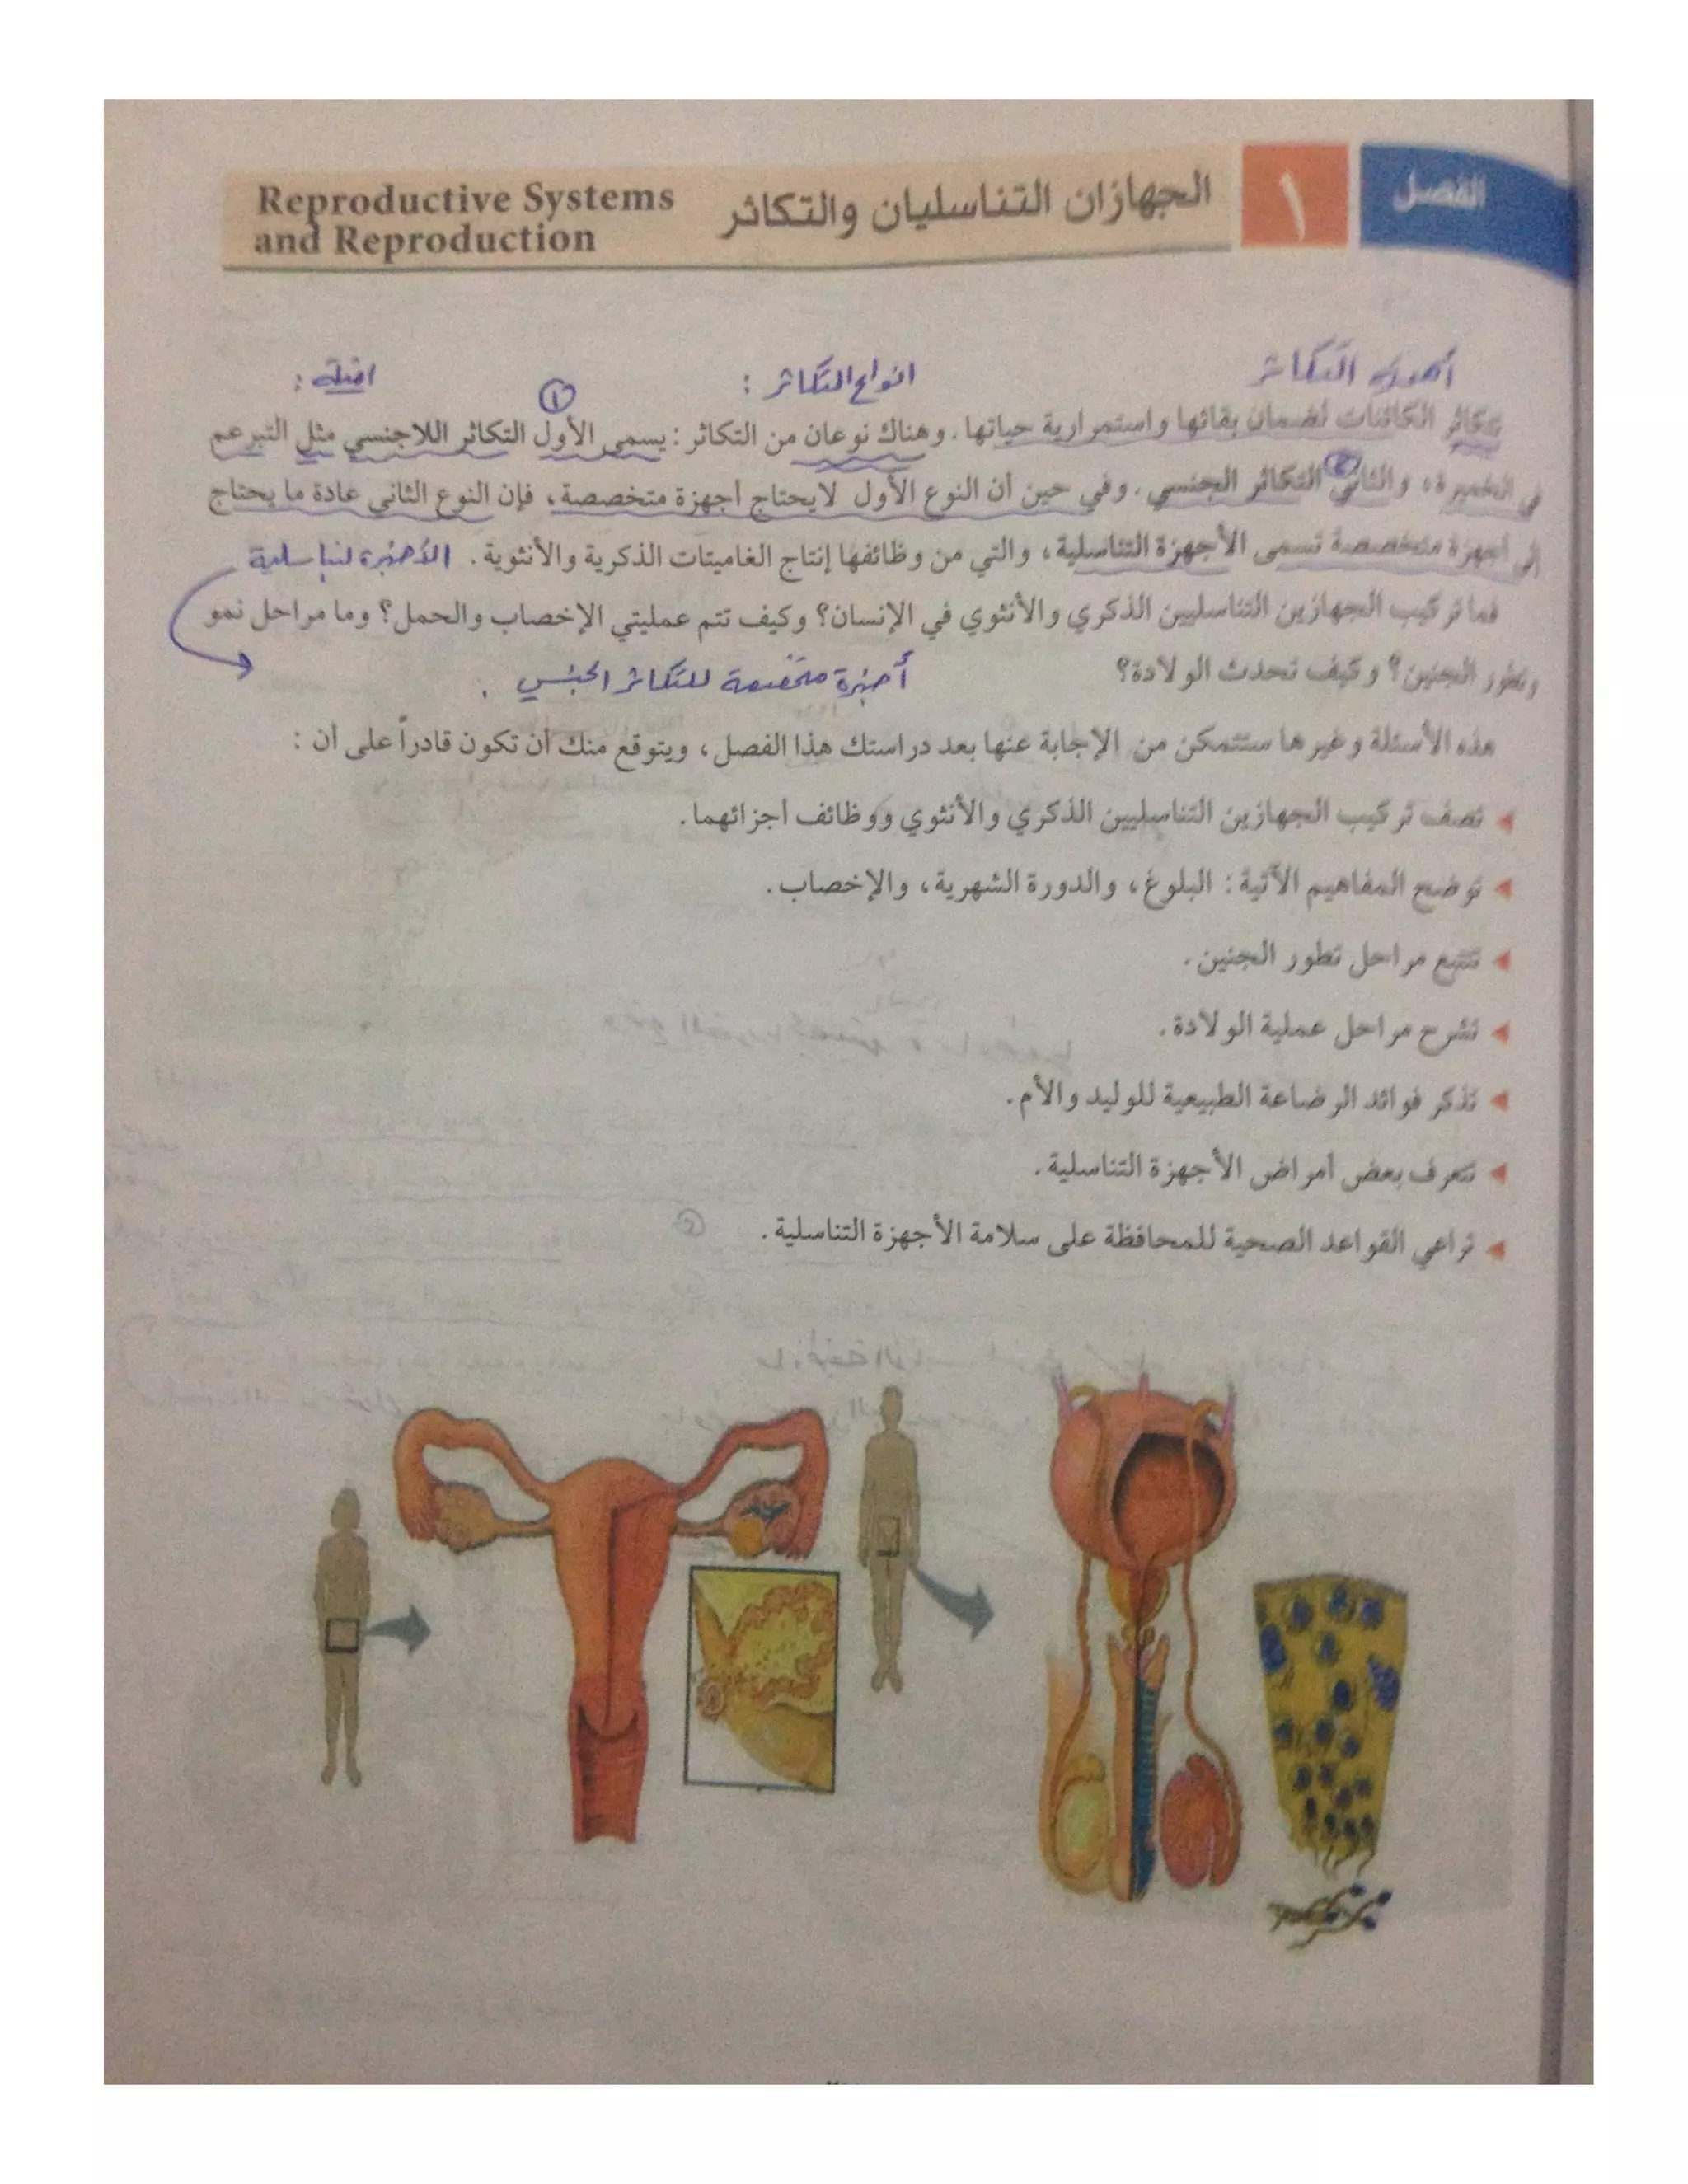 الفصل
١
الجهازان التناسليان والتكاثر
Reproductive Systems
and Reproduction
أهمية التكاثر
انواع التكاثر :
١
امثلة :
تتكاثر الكائنات لضمان بقائها واستمرارية حياتها. وهناك نوعان من التكاثر: يسمى الأول التكاثر اللاجنسي مثل التبرعم
٢
في الخميرة، والثاني التكاثر الجنسي. وفي حين أن النوع الأول لايحتاج أجهزة متخصصة، فإن النوع الثاني عادة ما يحتاج
إلى أجهزة متخصصة تسمى الأجهزة التناسلية، والتي من وظائفها إنتاج الغاميتات الذكرية والأنثوية.
الأجهزة لتناسلية
فما تركيب الجهازين التناسليين الذكري والأنثوي في الإنسان؟ وكيف تتم عمليتي الإخصاب والحمل؟ وما مراحل نمو
وتطور الجنين؟ وكيف تحدث الولادة؟
أجهزة متخصصة للتكاثر الجنسي .
هذه الأسئلة وغيرها ستتمكن من الإجابة عنها بعد دراستك هذا الفصل، ويتوقع منك أن تكون قادراً على أن :
تصف تركيب الجهازين التناسليين الذكري والأنثوي ووظائف أجزائهما.
توضح المفاهيم الآتية: البلوغ، والدورة الشهرية، والإخصاب.
تتتبع مراحل تطور الجنين.
تشرح مراحل عملية الولادة.
تذكر فوائد الرضاعة الطبيعية للوليد والأم.
تتعرف بعض أمراض الأجهزة التناسلية.
تراعي القواعد الصحية للمحافظة على سلامة الأجهزة التناسلية.